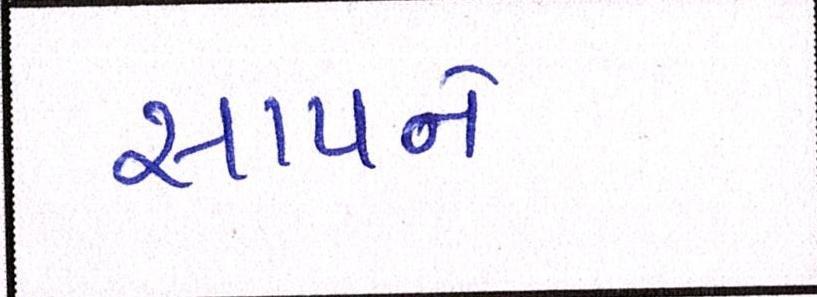 સાપને